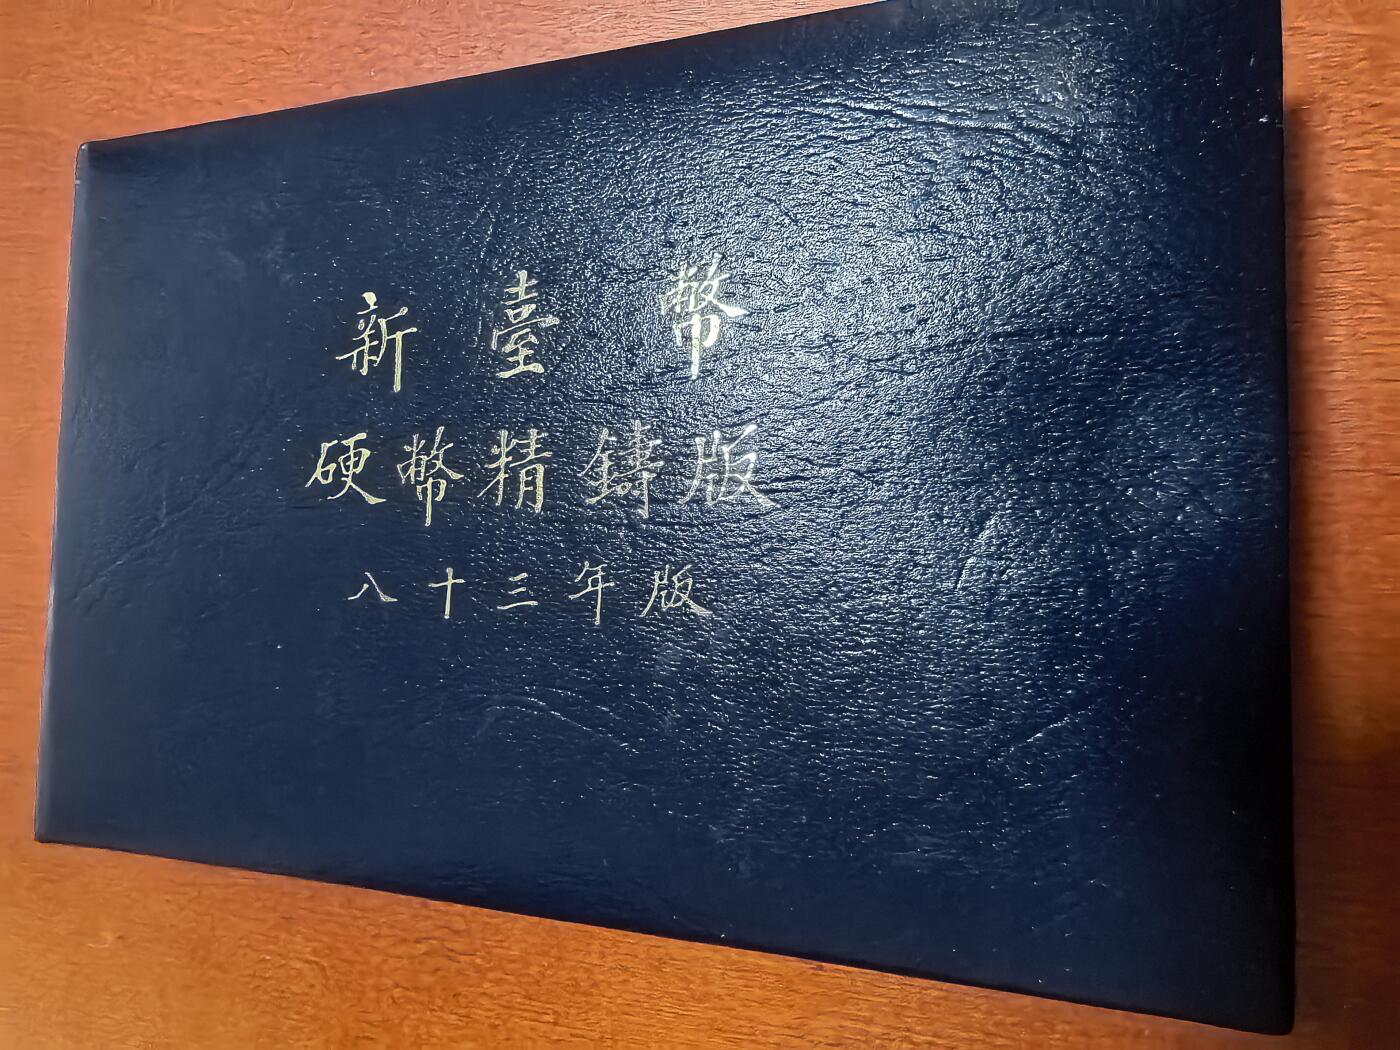 新臺幣
硬幣精鑄版
八十三年版